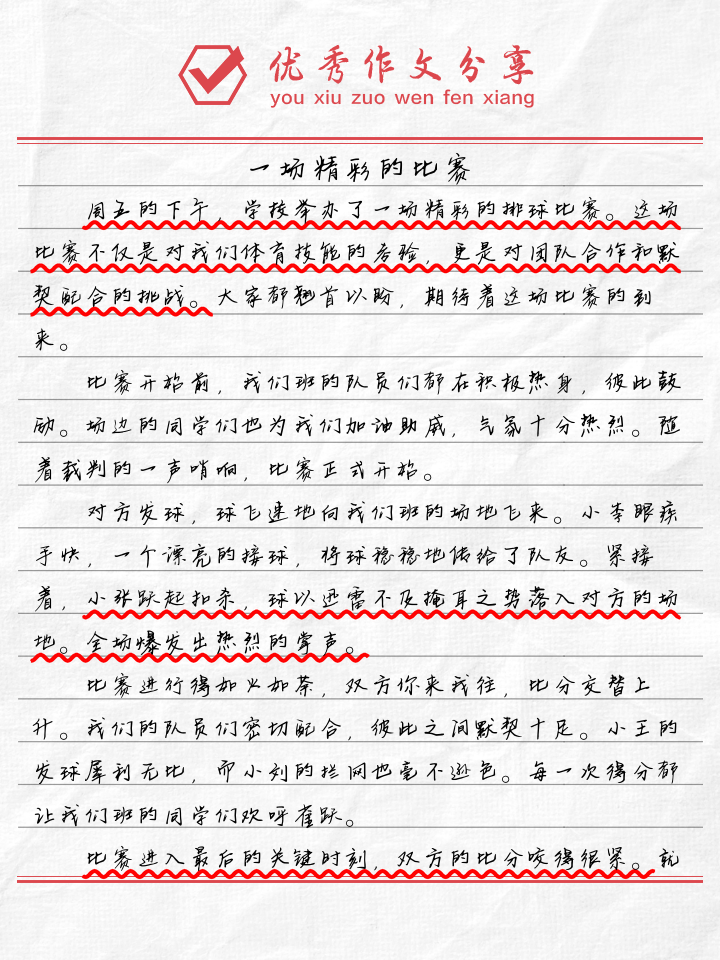 优秀作文分享
you xiu zuo wen fen xiang
一场精彩的比赛
周五的下午，学校举办了一场精彩的排球比赛。这场
比赛不仅是对我们体育技能的考验，更是对团队合作和默
契配合的挑战。大家都翘首以盼，期待着这场比赛的到
来。
比赛开始前，我们班的队员们都在积极热身，彼此鼓
励。场边的同学们也为我们加油助威，气氛十分热烈。随
着裁判的一声哨响，比赛正式开始。
对方发球，球飞速地向我们班的场地飞来。小李眼疾
手快，一个漂亮的接球，将球稳稳地传给了队友。紧接
着，小张跃起扣杀，球以迅雷不及掩耳之势落入对方的场
地。全场爆发出热烈的掌声。
比赛进行得如火如荼，双方你来我往，比分交替上
升。我们的队员们密切配合，彼此之间默契十足。小王的
发球犀利无比，而小刘的拦网也毫不逊色。每一次得分都
让我们班的同学们欢呼雀跃。
比赛进入最后的关键时刻，双方的比分咬得很紧。就